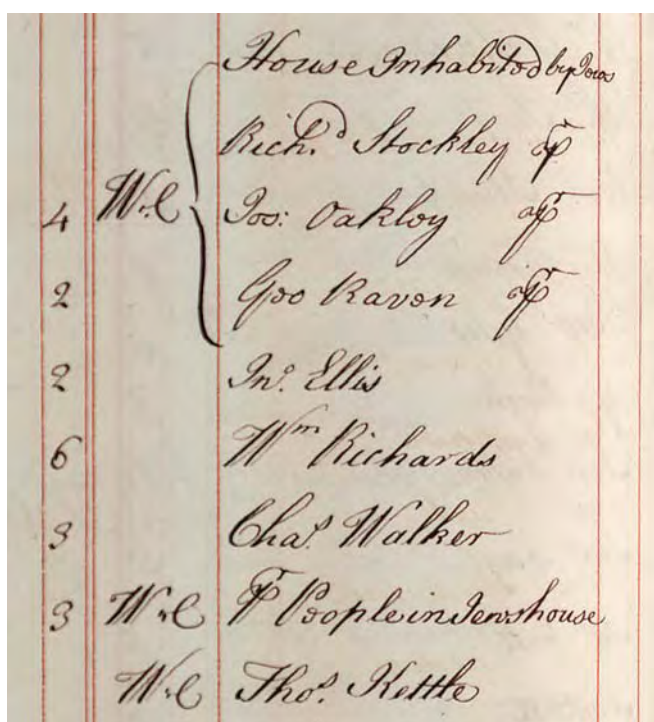 House Inhabited by Jews
Richd Stockley
4 W.C Jos: Oakley
2 Geo Raven
2 Jno. Ellis
6 Wm Richards
3 Chas. Walker
3 W.C People in Jewshouse
W.C Thos. Kettle